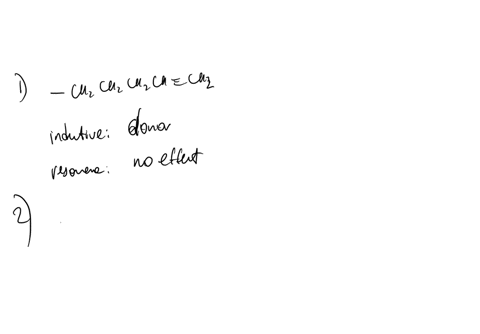 1) — CH₂ CH₂ CH₂ CH = CH₂
indutive: donor
resonene: no effect
2)